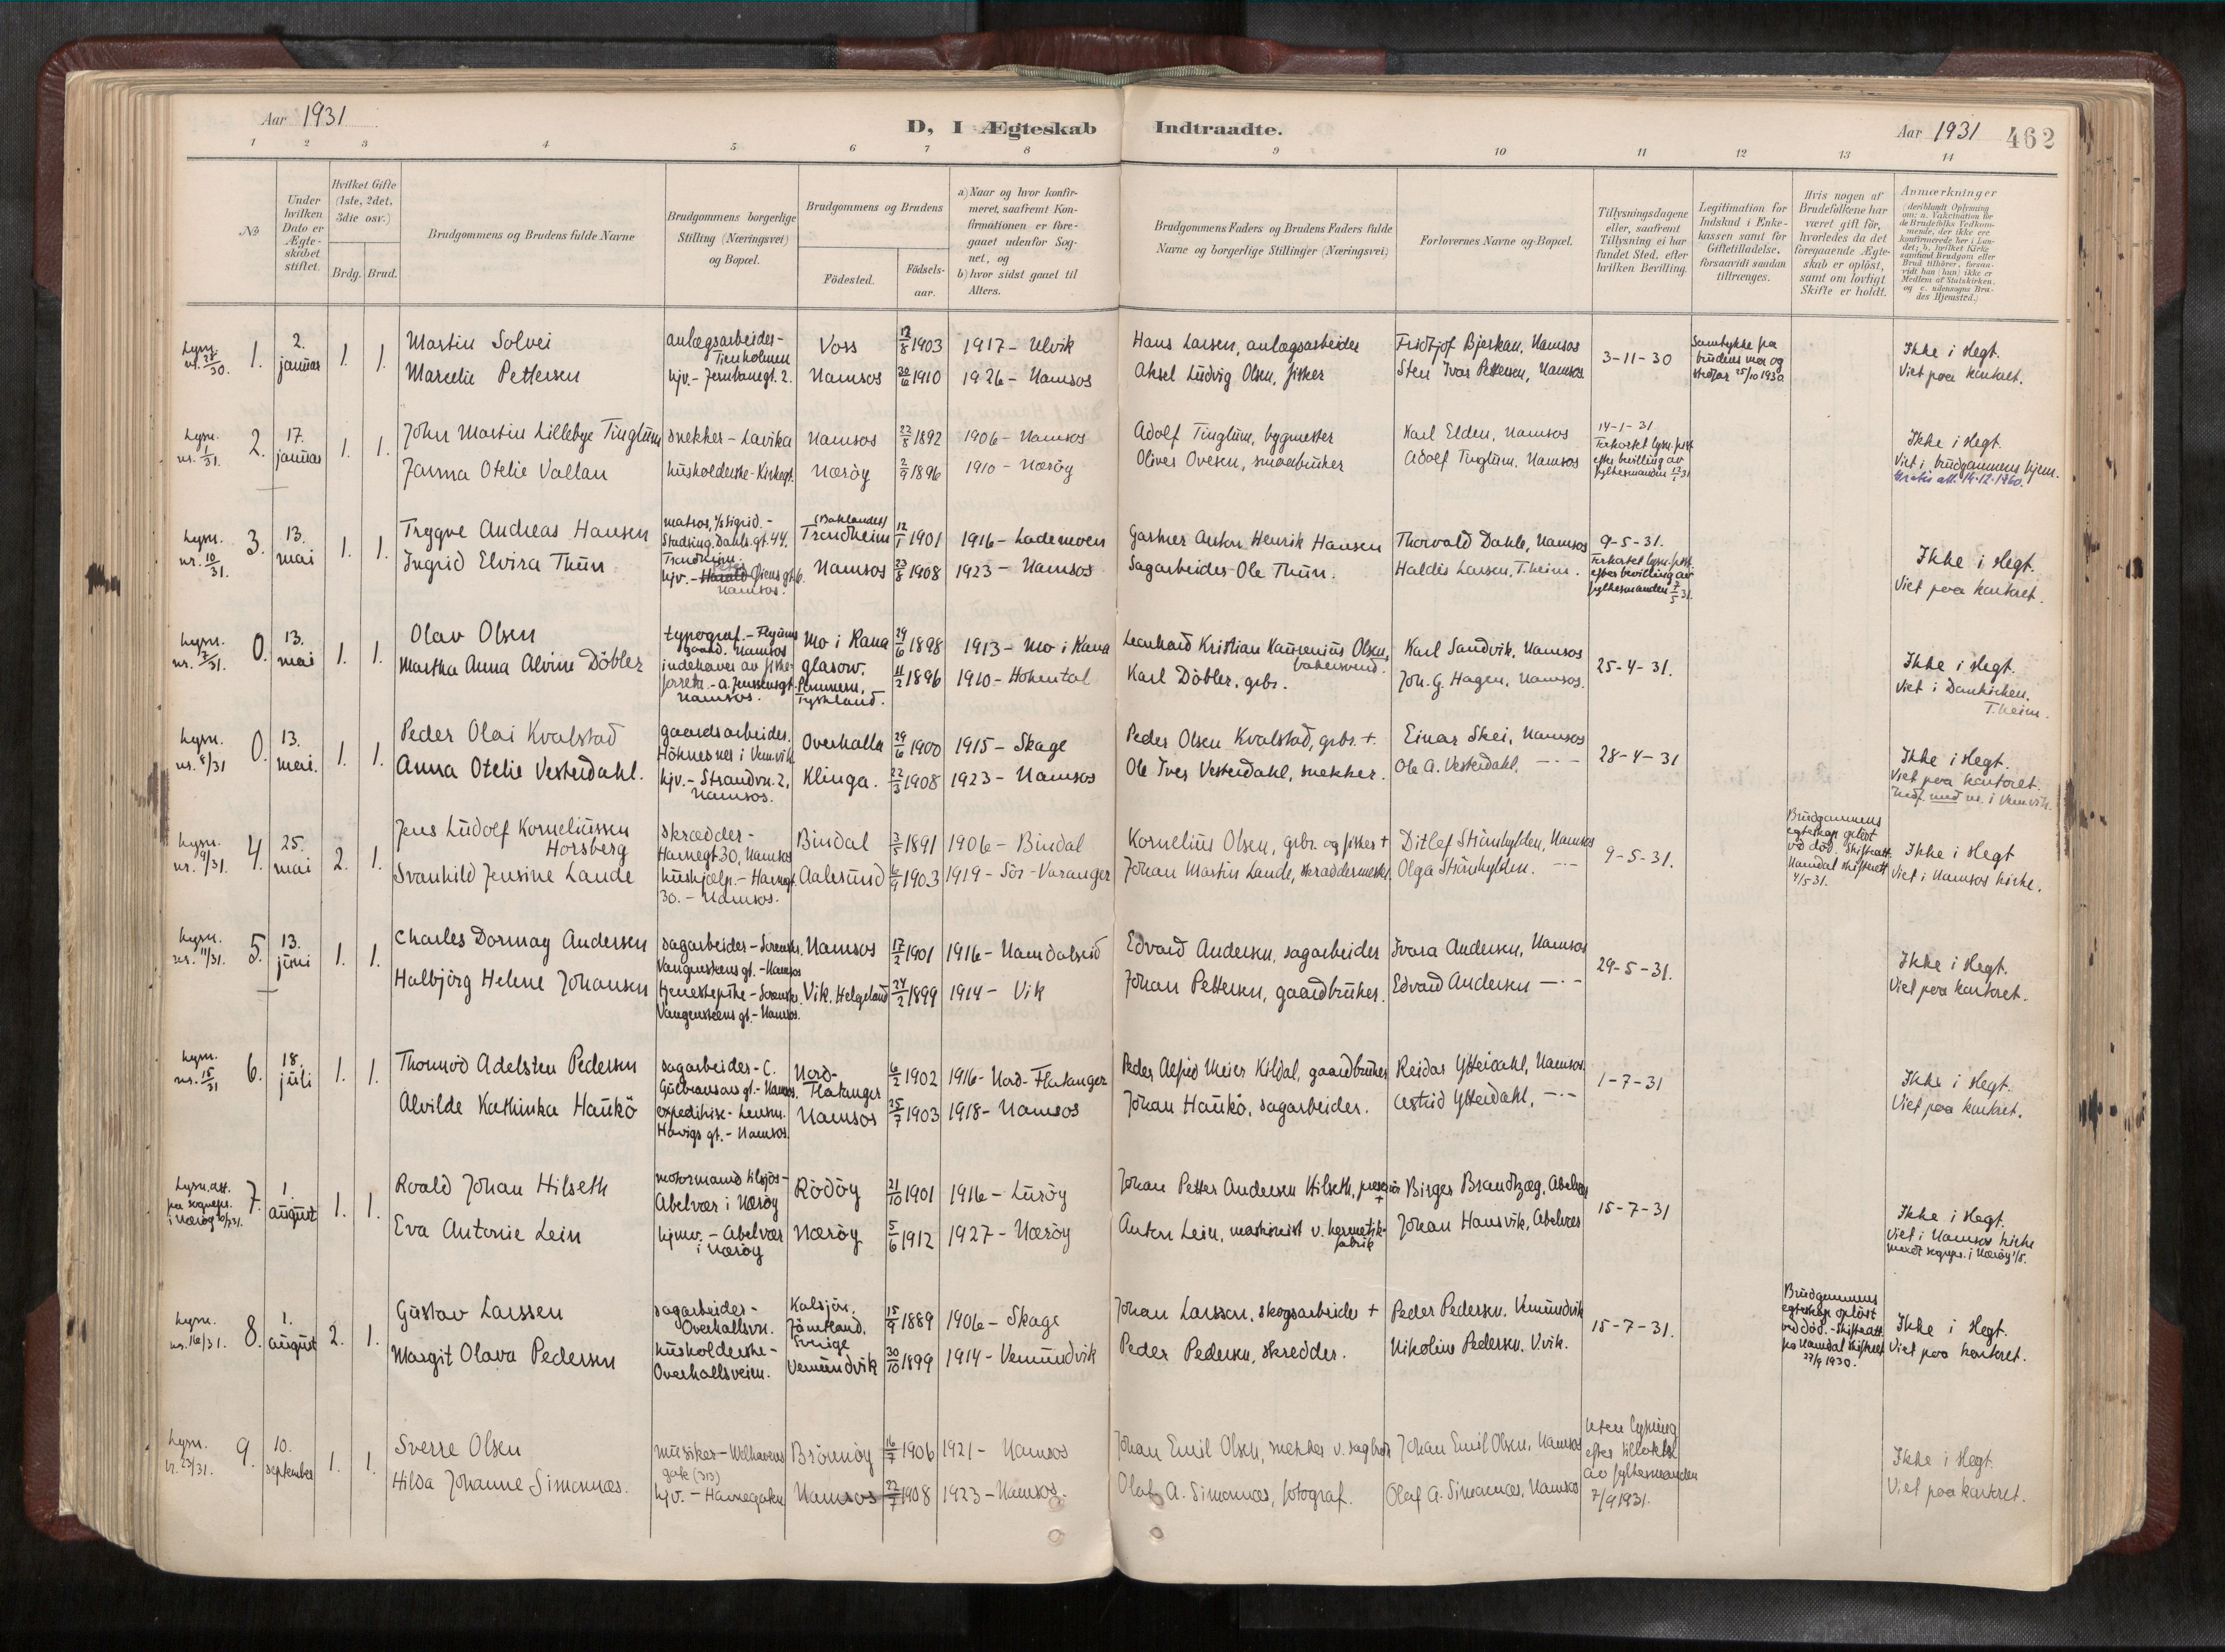 Aar 1931
D, I Ægteskab Indtraadte.
Aar 1931 462
1 2 3 4 5 6 7 8 9 10 11 12 13 14
No
Under hvilken Dato er Ægteskabet stiftet.
Hvilket Gifte (1ste, 2det, 3die osv.)
Brdg. Brud.
Brudgommens og Brudens fulde Navne
Brudgommens borgerlige Stilling (Næringsvei) og Bopæl.
Brudgommens og Brudens
Fødested.
Fødselsaar.
a) Naar og hvor konfirmeret, saafremt Konfirmationen er foregaaet udenfor Sognet, og
b) hvor sidst gaaet til Alters.
Brudgommens Faders og Brudens Faders fulde Navne og borgerlige Stillinger (Næringsvei)
Forlovernes Navne og Bopæl.
Tillysningsdagene eller, saafremt Tillysning ei har fundet Sted, efter hvilken Bevilling.
Legitimation for Indskud i Enkekassen samt for Giftetilladelse, forsaavidt saadan tiltrænges.
Hvis nogen af Brudefolkene har været gift før, hvorledes da det foregaaende Ægteskab er opløst, samt om lovligt Skifte er holdt.
Anmærkninger
(deriblandt Oplysning om: a. Vakcination for de Brudefolks Vedkommende, der ikke ere konfirmerede her i Landet; b. hvilket Kirkesamfund Brudgom eller Brud tilhører, forsaavidt han (hun) ikke er Medlem af Statskirken, og c. udensogns Brudes Hjemsted.)
Lysn. nr. 28/30. 1. 2. januar 1. 1.
Martin Solvei anlægsarbeider- Tjenholmen Voss 12/8 1903 1917 - Ulvik Hans Larsen, anlægsarbeider Fridtjof Bjørkan, Namsos
3-11-30 Samtykke fra brudens mor og stedfar 25/10 1930. Ikke i slegt. Viet paa kontoret.
Marelie Pettersen hjv. - Jernbanegt. 2. Namsos 20/6 1910 1926 - Namsos Aksel Ludvig Olsen, fisker Sten Ivar Pettersen, Namsos
Lysn. nr. 1/31. 2. 17. januar 1. 1.
John Martin Lillebye Tinglum snekker - Lavika Namsos 22/8 1892 1906 - Namsos Adolf Tinglum, bygmester Karl Elden, Namsos
14-1-31 Forkortet lysn. frist efter bevilling av fylkesmanden Ikke i slegt. Viet i brudgommens hjem. Gratis att. 14.12.1960.
Janna Otelie Vallan husholderske - Kirkegt. Nærøy 2/9 1896 1910 - Nærøy Oliver Ovesen, smaabruker Adolf Tinglum, Namsos
Lysn. nr. 10/31. 3. 13. mai 1. 1.
Trygve Andreas Hansen matros, Sigrid. - Stadsing. Dahls. gt. 44, Trondheim. (Baklandet) Trondheim 12/1 1901 1916 - Lademoen Gartner Anton Henrik Hansen Thorvald Dahle, Namsos
9-5-31. Forkortet lysn. frist efter bevilling av fylkesmanden 7/5 31. Ikke i slegt. Viet paa kontoret.
Ingrid Elvira Thun hjv. - Namsos. Namsos 23/8 1908 1923 - Namsos Sagarbeider Ole Thun. Haldis Larsen, T.heim.
Lysn. nr. 7/31. 0. 13. mai 1. 1.
Olav Olsen typograf. - Namsos Mo i Rana 29/6 1898 1913 - Mo i Rana Leonhard Kristian Olsen, bakersvend. Karl Sandvik, Namsos
25-4-31. Ikke i slegt. Viet i Domkirken, T.heim.
Martha Anna Alvine Döbler indehaver av - A. Jenssensgt. Namsos. Glasow, Pommern, Tyskland. 11/2 1896 1910 - Hohental Karl Döbler, grbr. Joh. G. Hagen, Namsos.
Lysn. nr. 8/31 0. 13. mai. 1. 1.
Peder Olai Kvalstad gaardsarbeider. Höknesnes i Vemvik Overhalla 29/6 1900 1915 - Skage Peder Olsen Kvalstad, grbr. +. Einar Skei, Namsos
28-4-31 Ikke i slegt. Viet paa kontoret.
Anna Otelie Vesterdahl. hjv. - Strandvn. 2, Namsos. Klinga. 22/3 1908 1923 - Namsos Ole Iver Vesterdahl, snekker. Ole A. Vesterdahl, -·-
Lysn. nr. 9/31. 4. 25. mai 2. 1.
Jens Ludolf Korneliussen Horsberg skrædder - Havnegt 30, Namsos Bindal 3/5 1891 1906 - Bindal Kornelius Olsen, grbr. og fisker + Ditlef Strömhylden, Namsos
9-5-31. Brudgommens egteskap oplöst ved död. Skifteatt. Namdal skifterett 4/5 31. Ikke i slegt Viet i Namsos kirke.
Svanhild Jensine Lande hushjælp. - Havnegt. 30. - Namsos. Aalesund 6/9 1903 1919 - Sör-Varanger Johan Martin Lande, skræddermester. Olga Strömhylden. -·-
Lysn. nr. 11/31. 5. 13. juni 1. 1.
Charles Dormay Andersen sagarbeider - Sorensk. Vangensteens gt. - Namsos Namsos 17/2 1901 1916 - Namdalseid Edvard Andersen, sagarbeider Ivara Andersen, Namsos
29-5-31. Ikke i slegt. Viet paa kontoret.
Halbjörg Helene Johansen tjenestepike - Sorensk. Vangensteens gt. - Namsos. Vik, Helgeland 24/2 1899 1914 - Vik Johan Pettersen, gaardbruker. Edvard Andersen -·-
Lysn. nr. 15/31 6. 18. juli 1. 1.
Thormod Adelsten Pedersen sagarbeider - C. Gulbransons gt. - Namsos. Nord-Flatanger 6/2 1902 1916 - Nord-Flatanger Peder Alfred Meier Kildal, gaardbruker Reidar Ytterdahl, Namsos.
1-7-31 Ikke i slegt. Viet paa kontoret.
Alvilde Kathinka Haukö expeditrise - Lensm. Havigs gt. - Namsos. Namsos 25/7 1903 1918 - Namsos Johan Haukö, sagarbeider. Astrid Ytterdahl, -·-
Lysn.att. fra sogneprs. i Nærøy 7. 1. august 1. 1.
Roald Johan Hilseth motormand tilsjös - Abelvær i Nærøy Rödöy 21/10 1901 1916 - Luröy Johan Petter Andersen Hilseth, + Birger Brandtzæg, Abelvær
15-7-31 Ikke i slegt. Viet i Namsos kirke
Eva Antonie Lein hjmv. - Abelvær i Nærøy Nærøy 5/6 1912 1927 - Nærøy Anton Lein, maskinist v. hermetikfabrik Johan Hansvik, Abelvær
Lysn. nr. 16/31. 8. 1. august 2. 1.
Gustav Larssen sagarbeider - Overhallsvn. Kalsjön, Jämtland, Sverige 15/9 1889 1906 - Skage Johan Larsson, skogsarbeider + Peder Pedersen, Vemundvik
15-7-31. Brudgommens egteskap oplöst ved död. - Skifteatt. fra Namdal skifterett 27/9 1930. Ikke i slegt. Viet paa kontoret.
Margit Olava Pedersen husholderske - Overhallsveien. Vemundvik 30/10 1899 1914 - Vemundvik Peder Pedersen, skredder. Nikoline Pedersen. V.vik.
Lysn. nr. 23/31. 9. 10. september 1. 1.
Sverre Olsen musiker - Welhavens gate (313) Brönnöy 16/7 1906 1921 - Namsos Johan Emil Olsen, snekker v. sagbruk Johan Emil Olsen, Namsos
Uten lysning efter tillatelse av fylkesmanden 7/9 1931. Ikke i slegt. Viet paa kontoret.
Hilda Johanne Simonnæs. hjv. - Havnegaten Namsos 22/7 1908 1923 - Namsos. Olaf A. Simonnæs, fotograf. Olaf A. Simonnæs, Namsos